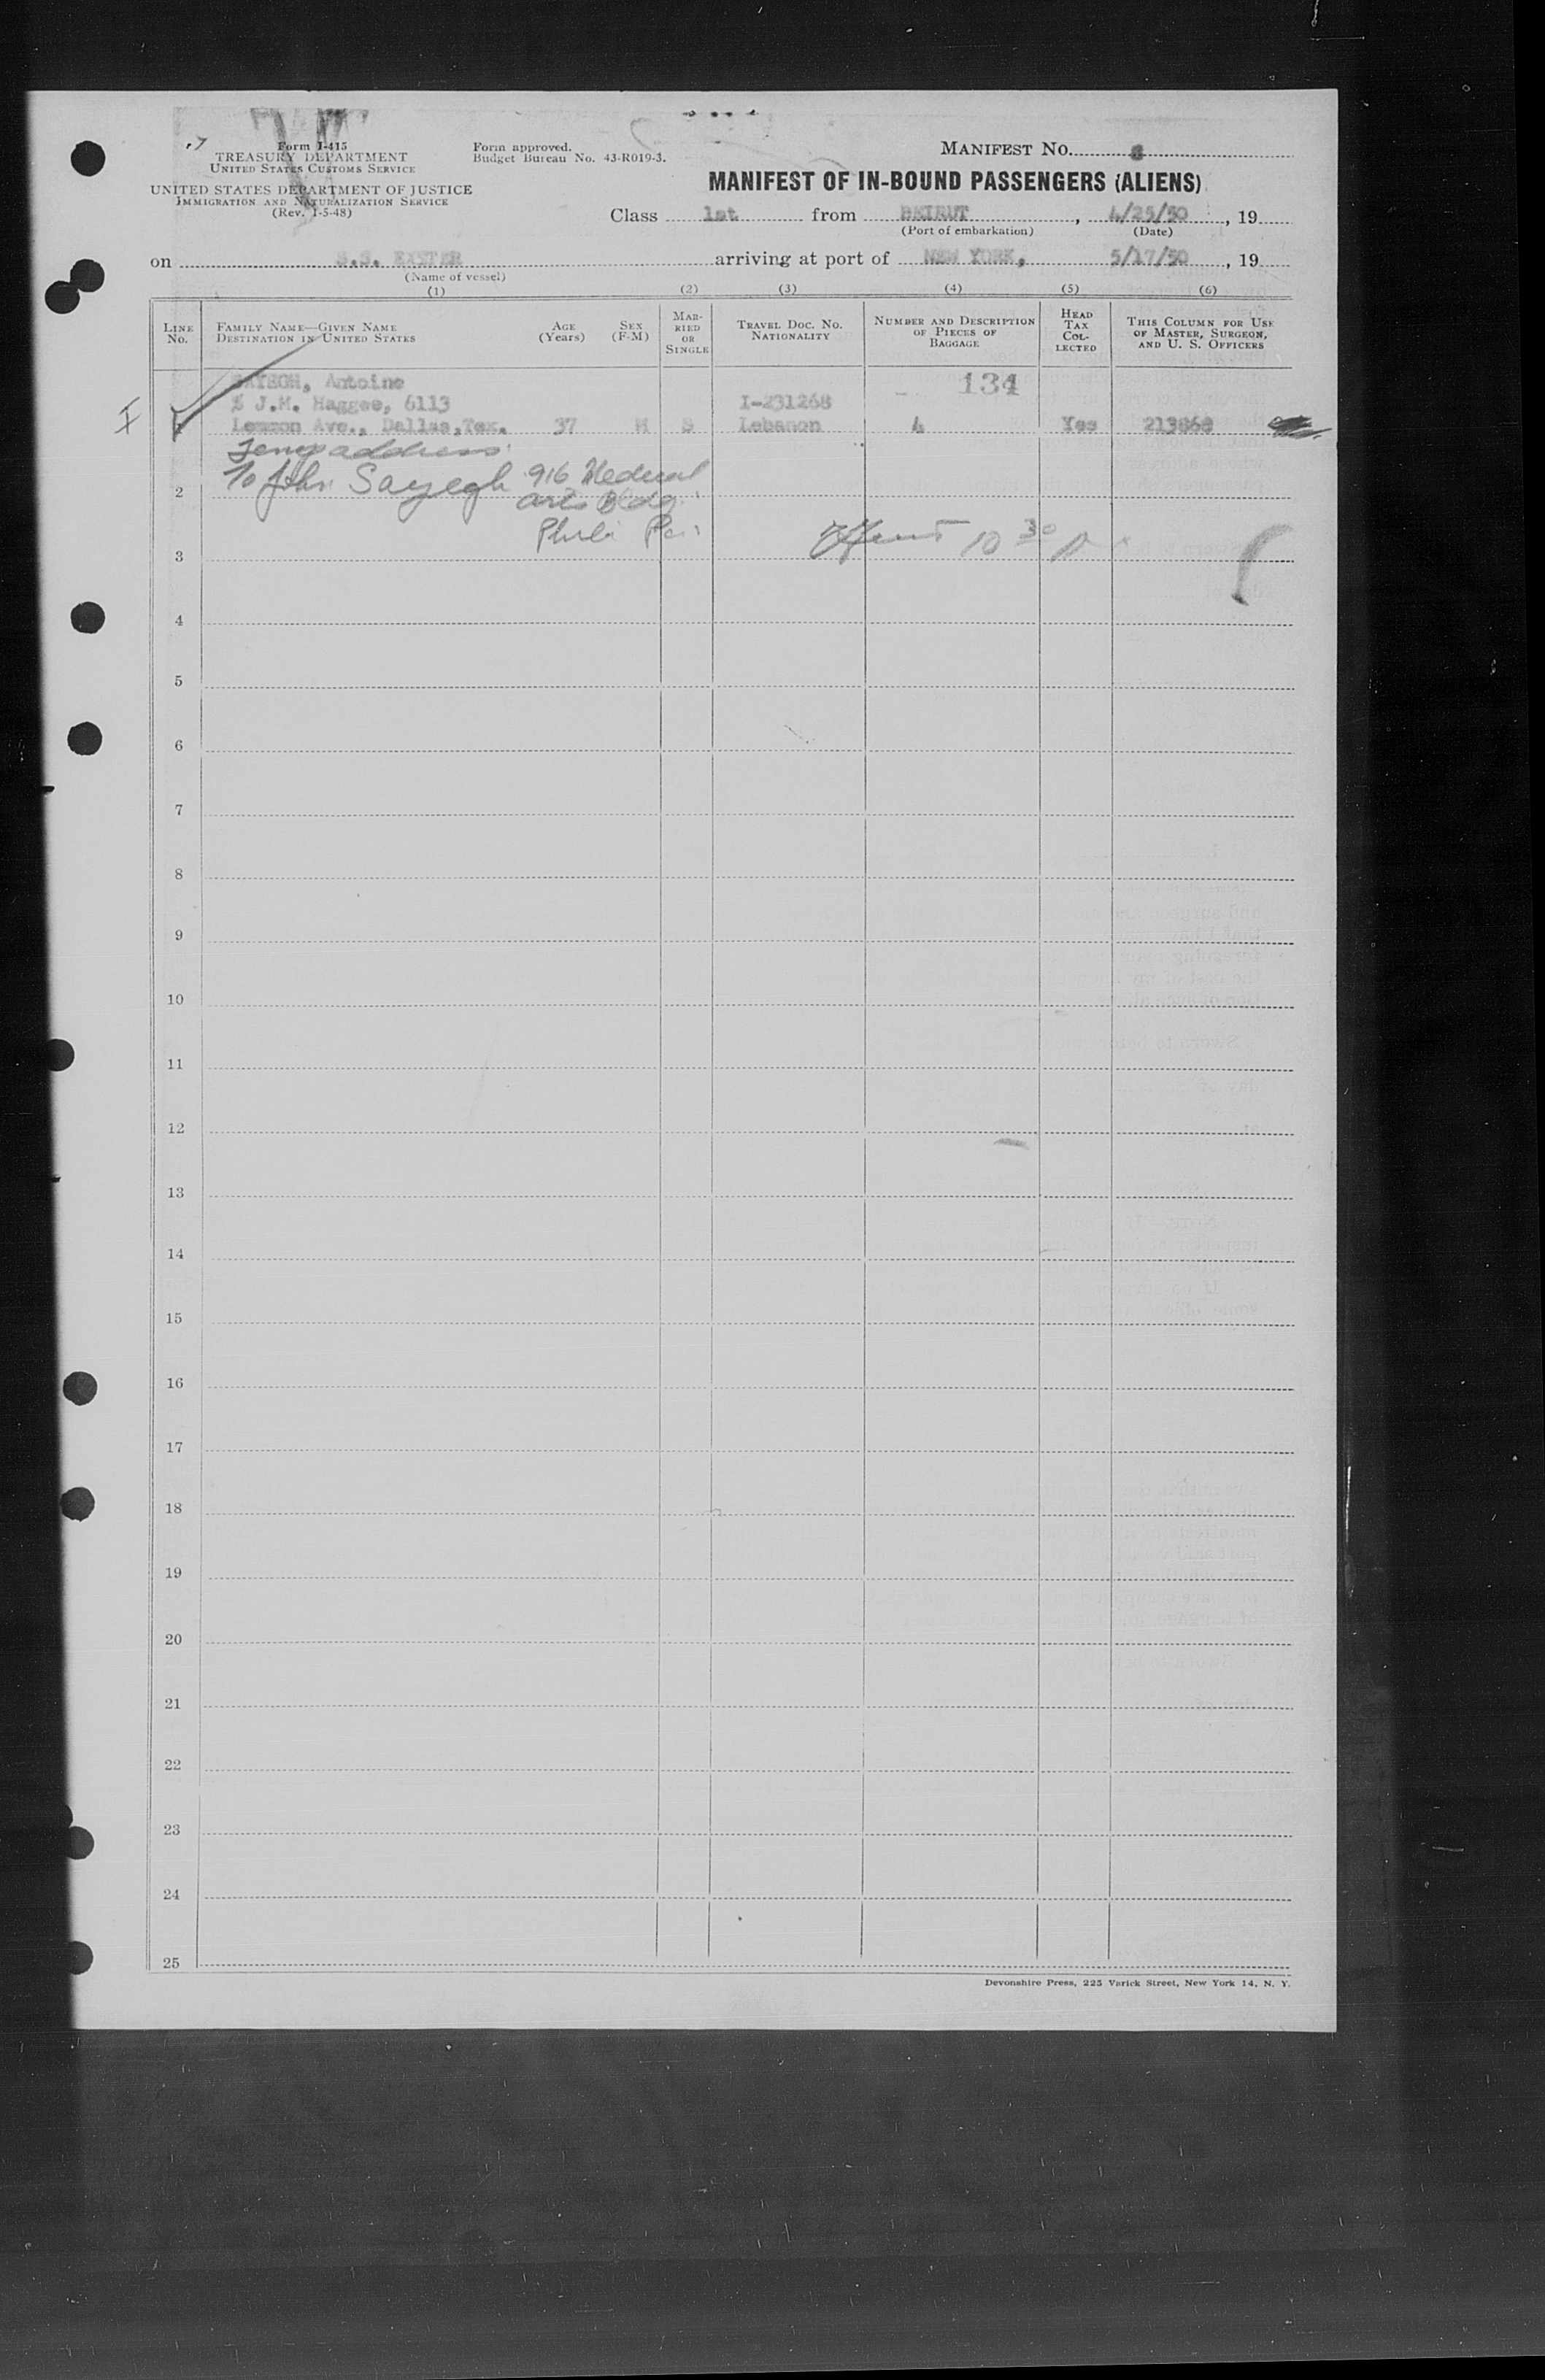 Form I-415
TREASURY DEPARTMENT
UNITED STATES CUSTOMS SERVICE
UNITED STATES DEPARTMENT OF JUSTICE
IMMIGRATION AND NATURALIZATION SERVICE
(Rev. 1-5-48)
Form approved.
Budget Bureau No. 43-R019-3.
MANIFEST NO.
MANIFEST OF IN-BOUND PASSENGERS (ALIENS)
Class 1st from BEIRUT, 4/25/50, 19
(Port of embarkation) (Date)
on S.S. EXETER arriving at port of NEW YORK, 5/17/50, 19
(Name of vessel)
(1) (2) (3) (4) (5) (6)
LINE NO.
FAMILY NAME—GIVEN NAME
DESTINATION IN UNITED STATES
AGE (Years)
SEX (F-M)
MARRIED OR SINGLE
TRAVEL DOC. NO. NATIONALITY
NUMBER AND DESCRIPTION OF PIECES OF BAGGAGE
HEAD TAX COLLECTED
THIS COLUMN FOR USE OF MASTER, SURGEON, AND U. S. OFFICERS
SAYEGH, Antoine 134
% J.M. Haggee, 6113 I-231268
Lemmon Ave., Dallas,Tex. 37 M S Lebanon 4 Yes 213868
Temp address
℅ John Sayegh 916 Medical
2 Arts Bldg.
Phila Pa.
10 30
3
4
5
6
7
8
9
10
11
12
13
14
15
16
17
18
19
20
21
22
23
24
25
Devonshire Press, 225 Varick Street, New York 14, N. Y.